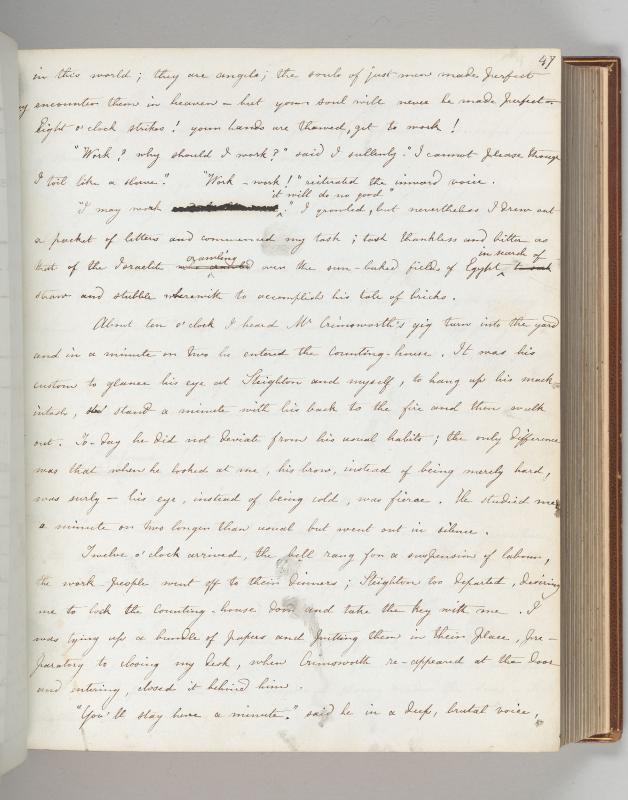 47
in this world ; they are angels ; the souls of just men made perfect
encounter them in heaven – but your soul will never be made perfect –
Eight o'clock strikes ! your hands are thawed, get to work !
"Work ? why should I work ?" said I sullenly. "I cannot please though
I toil like a slave." "Work – work !" reiterated the inward voice.
it will do no good"
"I may work " I growled, but nevertheless I drew out
a packet of letters and commenced my task ; task thankless and bitter as
crawling in search of
that of the Israelite over the sun-baked fields of Egypt
straw and stubble wherewith to accomplish his tale of bricks.
About ten o'clock I heard Mr Crimsworth's gig turn into the yard
and in a minute or two he entered the counting-house. It was his
custom to glance his eye at Steighton and myself, to hang up his mack-
intosh, stand a minute with his back to the fire and then walk
out. To-day he did not deviate from his usual habits ; the only difference
was that when he looked at me, his brow, instead of being merely hard,
was surly – his eye, instead of being cold, was fierce. He studied me
a minute or two longer than usual but went out in silence.
Twelve o'clock arrived, the bell rang for a suspension of labour,
the work-people went off to their dinners ; Steighton too departed, desiring
me to lock the counting-house door and take the key with me. I
was tying up a bundle of papers and putting them in their place, pre-
paratory to closing my desk, when Crimsworth re-appeared at the door
and entering, closed it behind him.
"You'll stay here a minute." said he in a deep, brutal voice,